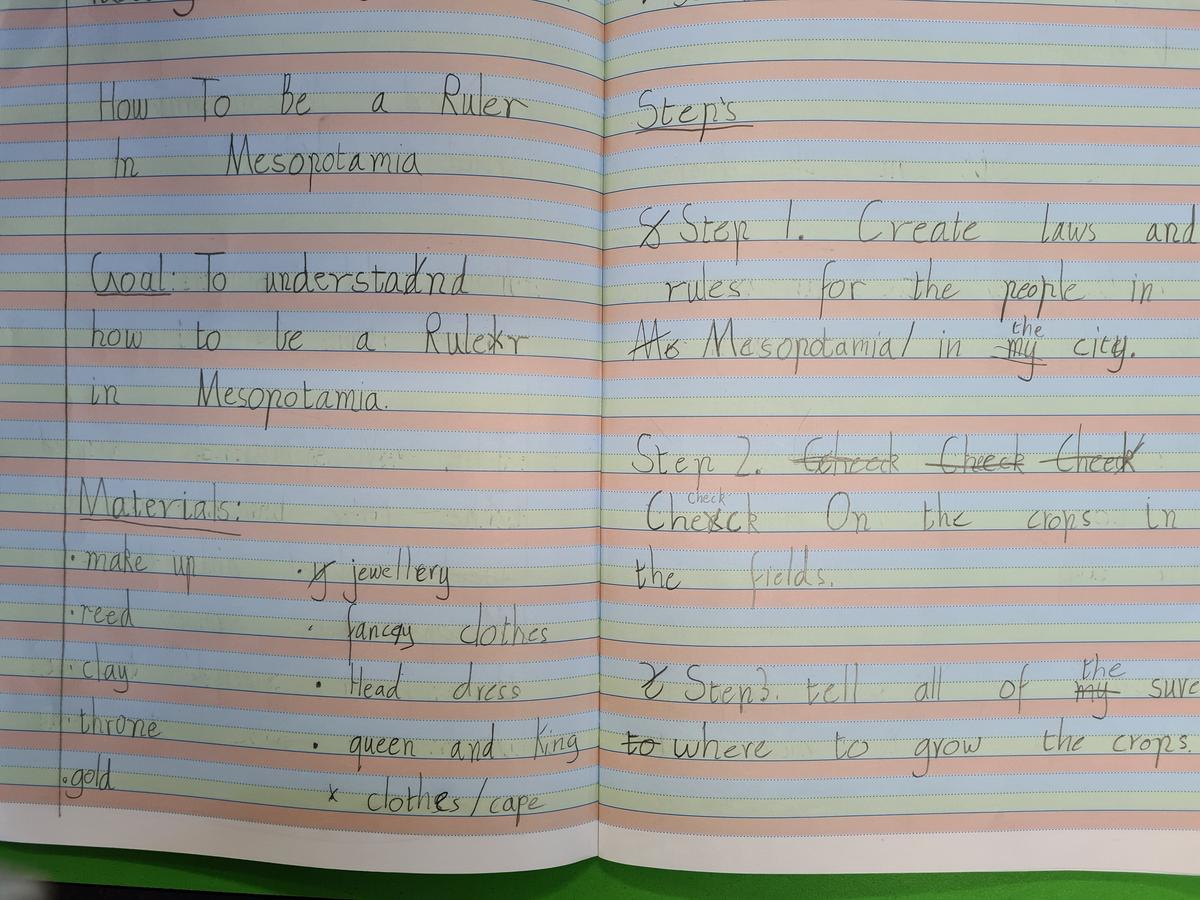 How To Be a Ruler
In Mesopotamia
Goal: To understand
how to be a Ruler
in Mesopotamia.
Materials:
· make up
· reed
· clay
· throne
· gold
· jewellery
· fancy clothes
· Head dress
· queen and King
x clothes/cape
Step's
Step 1. Create laws and
rules for the people in
Mesopotamia/ in the city.
Step 2.
Check
Check On the crops in
the fields.
Step3. tell all of the
where to grow the crops.